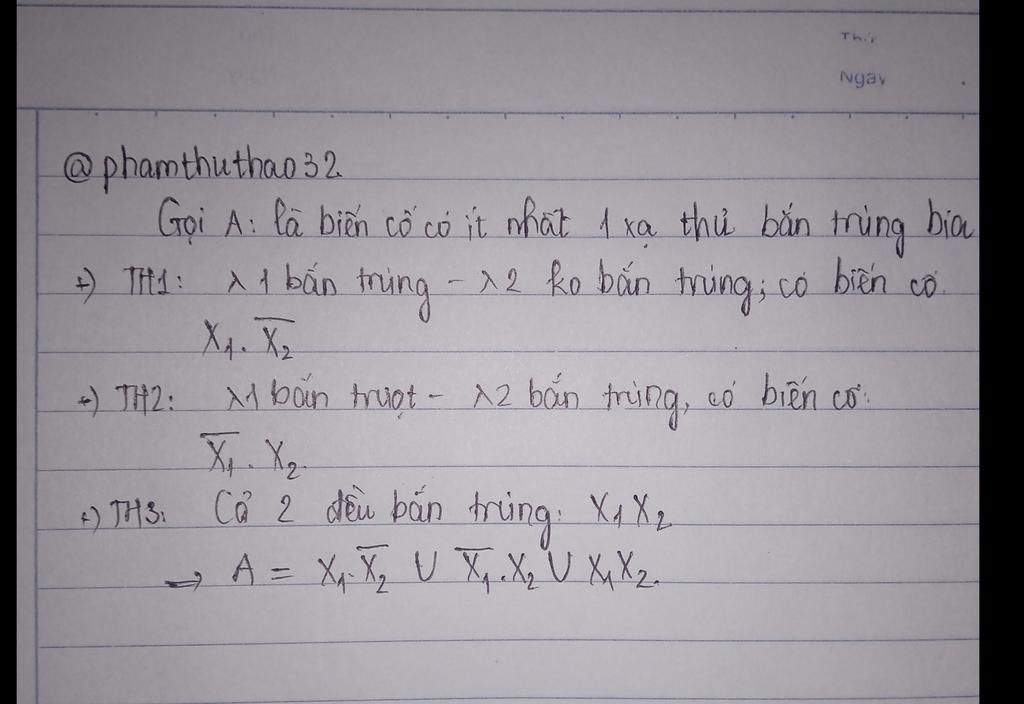 Thứ
Ngày
@phamthuthao32
Gọi A: là biến cố có ít nhất 1 xạ thủ bắn trúng bia
+) TH1: λ1 bắn trúng - λ2 ko bắn trúng; có biến cố.
X₁.X̅₂
+) TH2: λ1 bắn trượt - λ2 bắn trúng, có biến cố:
X̅₁.X₂.
+) TH3: Cả 2 đều bắn trúng: X₁X₂
→ A = X₁.X̅₂ ∪ X̅₁.X₂ ∪ X₁X₂.